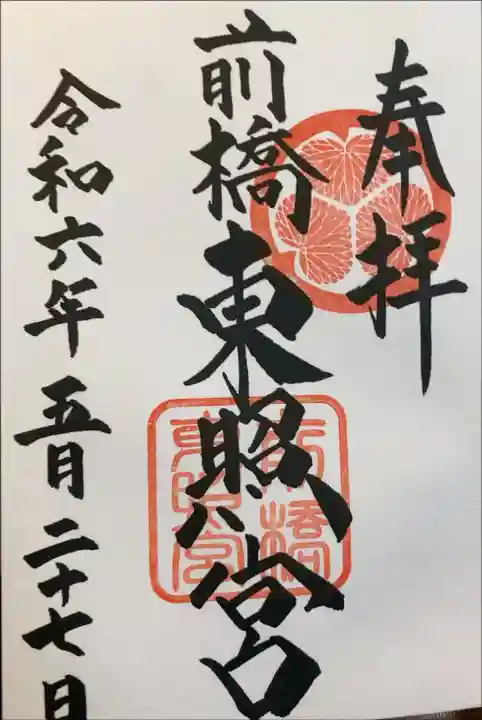 奉拝
前橋東照宮
前橋
東照宮
令和六年五月二十七日